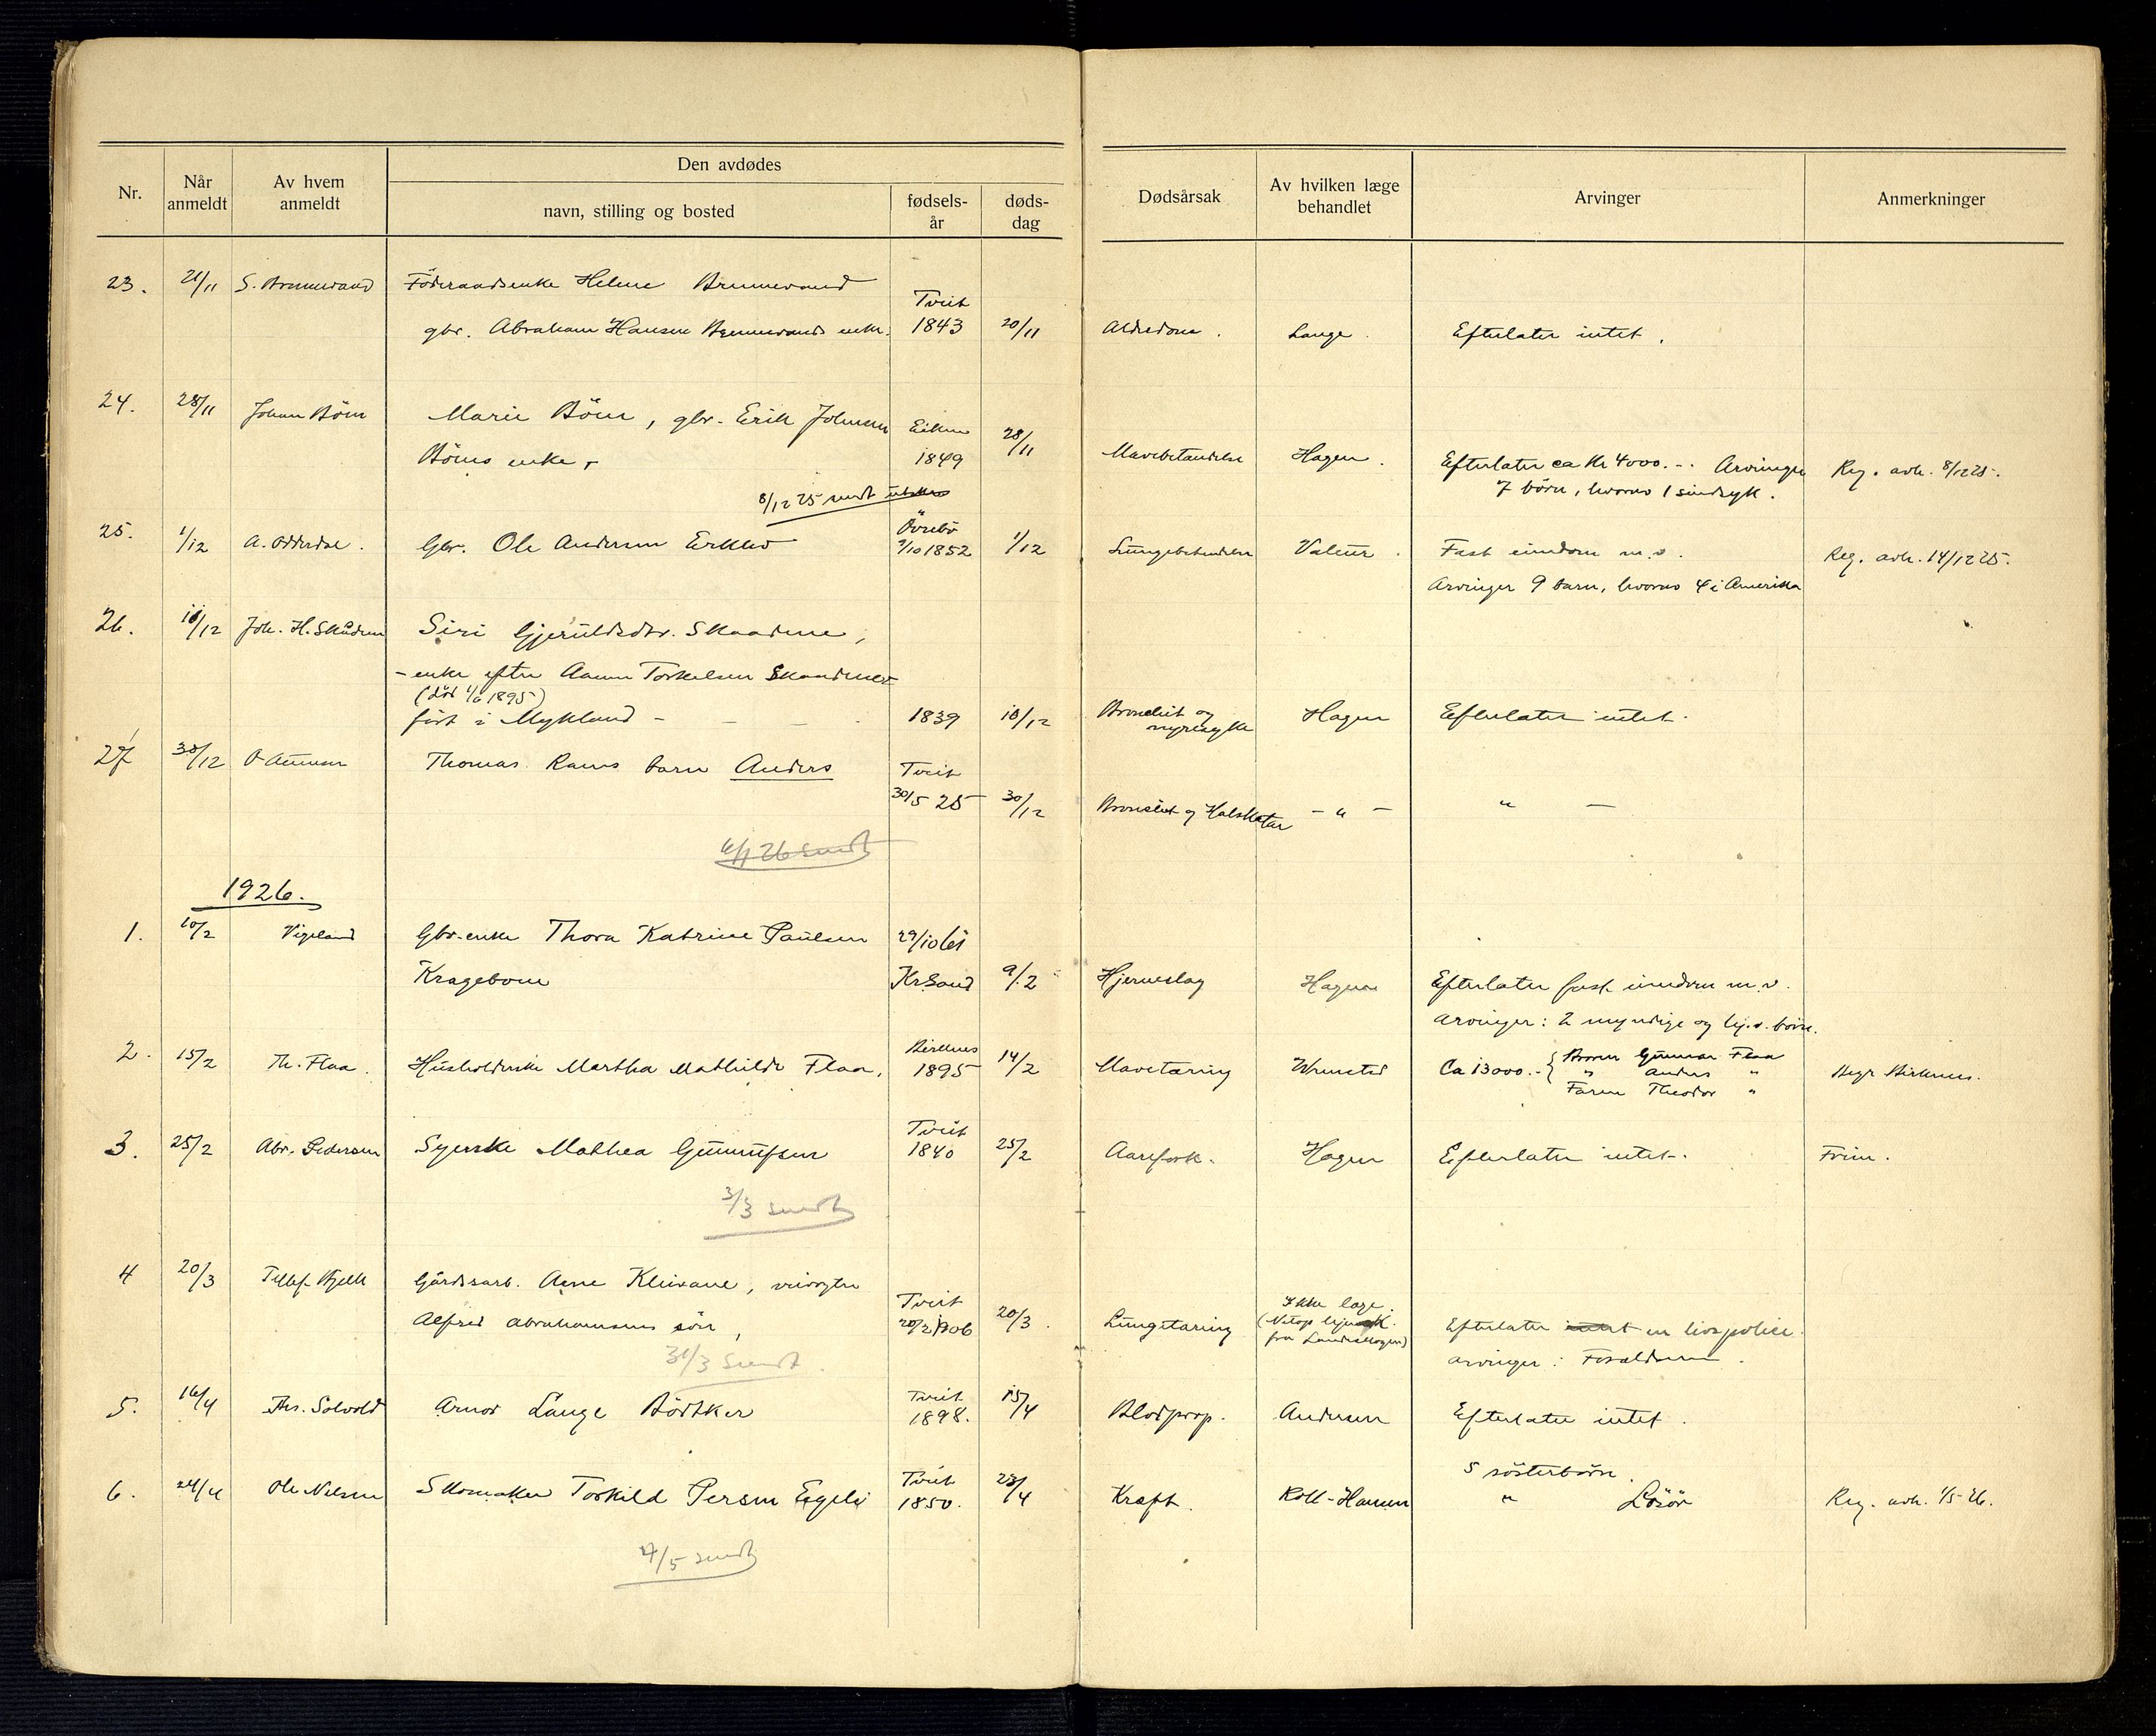 Nr.
Når anmeldt
Av hvem anmeldt
Den avdødes
navn, stilling og bosted
fødsels-år
døds-dag
Dødsårsak
Av hvilken læge behandlet
Arvinger
Anmerkninger
23. 21/11 S. Brunnevand Föderaadsenke Helene Brunnevand
gbr. Abraham Hansen Brunnevands enke. Tveit 1843 20/11 Alderdom. Lange. Efterlater intet.
24. 28/11 Johan Böen Marie Böen, gbr. Erik Johnsen
Böens enke, Eiken 1849 28/11 Mavebetændelse Hagen. Efterlater ca Kr 4000.-. Arvinger Reg. avh. 8/12 25.
7 börn, hvorav 1 sindsyk.
8/12 25 sendt
25. 1/12 A. Odderdal. Gbr. Ole Andersen Erkleiv Övrebö 9/10 1852 1/12 Lungebetændelse Valeur. Fast eiendom m.v. Reg. avh. 14/12 25.
Arvinger 9 barn, hvorav 4 i Amerika
26. 18/12 Joh. H. Siri Gjeruldsdtr. Skaadene,
- enke efter Aanen Torkelsen
(död 1895)
fört i Mykland - - - 1839 18/12 Bronchit og nyresyke Hagen Efterlater intet.
27 30/12 O Aanensen Thomas Rams barn Anders Tveit
30/5 25 30/12 Bronchit og Halskatar - " - " -
6/1 26 sendt
1926.
1. 10/2 Vigeland Gbr. enke Thora Katrine Paulsen 29/10 61
Krageboen KrSand 9/2 Hjerneslag Hagen Efterlater fast eiendom m.v.
Arvinger: 2 myndige og börn.
2. 15/2 Th. Flaa. Husholderske Martha Mathilde Flaa. Birkenes 1895 14/2 Mavetæring Ca 13000.- { Broren Gunnar Flaa
" Anders "
Faren Theodor " Begr. Birkenes.
3. 25/2 Abr. Pedersen Syerske Mathea Gunnufsen Tveit 1840 25/2 Aarefork. Hagen Efterlater intet. Frim.
3/3 sendt
4 20/3 Tellef Gårdsarb. Arne Kleivane,
Alfred Abrahamsens sön, Tveit 20/2 1906 20/3. Lungetæring Ikke læge.
(Netop hjemk.
fra Landeskogen) Efterlater intet en livspolice.
Arvinger: Forældrene.
31/3 Sendt.
5. 16/4 Ths. Solvold Arnor Lange Bödtker Tveit 1898. 15/4 Blodprop. Andersen Efterlater intet.
6. 24/4 Ole Nelson Skomaker Torkild Persen Egeli Tveit 1850. 23/4 Kræft. Roll-Hansen 5 sösterbörn.
" Lösör Reg. avh. 1/5 26.
4/5 sendt